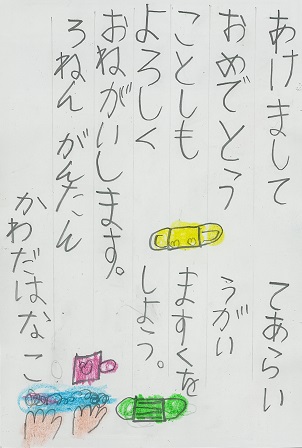 あけまして
おめでとう
ことしも
よろしく
おねがいします。
ろねん がんたん
かわだはなこ
てあらい
うがい
ますくを
しよう。